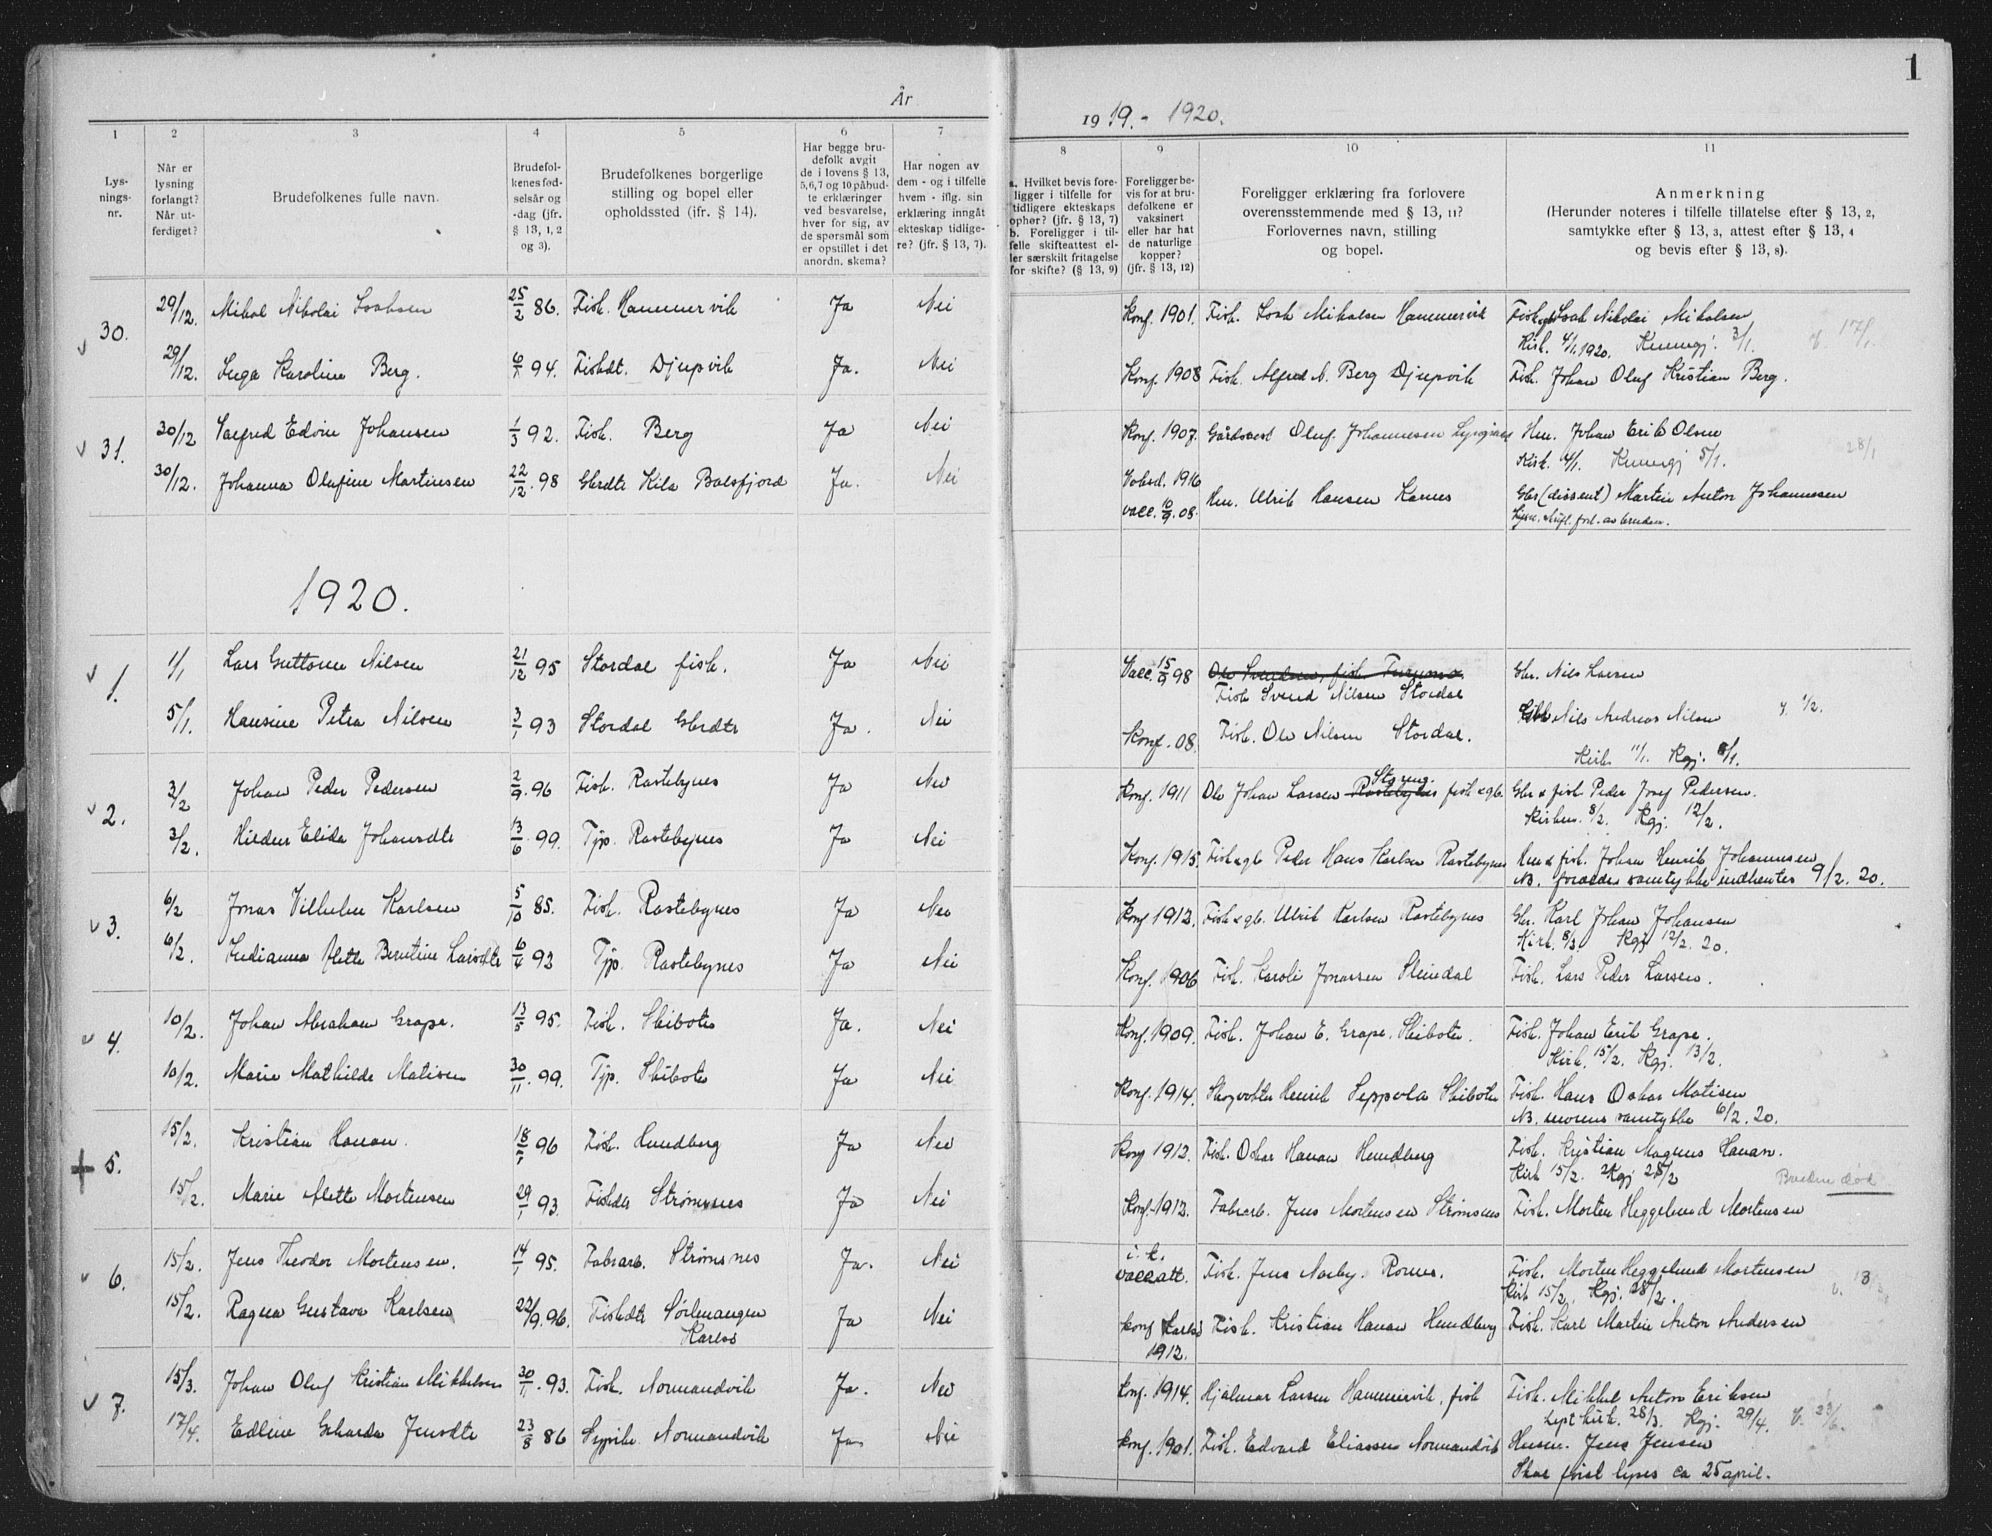 År
1919.- 1920.
1
1 2 3 4 5 6 7 8 9 10 11
Lys-
nings-
nr.
Når er
lysning
forlangt?
Når ut-
ferdiget?
Brudefolkenes fulle navn.
Brudefol-
kenes fød-
selsår og
-dag (jfr.
§ 13, 1, 2
og 3).
Brudefolkenes borgerlige
stilling og bopel eller
opholdssted (jfr. § 14).
Har begge bru-
defolk avgit
de i lovens § 13,
5,6,7 og 10 påbud-
te erklæringer
ved besvarelse,
hver for sig, av
de spørsmål som
er opstillet i det
anordn. skema?
Har nogen av
dem - og i tilfelle
hvem - iflg. sin
erklæring inngått
ekteskap tidlige-
re? (jfr. § 13, 7).
a. Hvilket bevis fore-
ligger i tilfelle for
tidligere ekteskaps
ophør? (jfr. § 13, 7)
b. Foreligger i til-
felle skifteattest el-
ler særskilt fritagelse
for skifte? (§ 13, 9)
Foreligger be-
vis for at bru-
defolkene er
vaksinert
eller har hat
de naturlige
kopper?
(jfr. § 13, 12)
Foreligger erklæring fra forlovere
overensstemmende med § 13, 11?
Forlovernes navn, stilling
og bopel.
Anmerkning
(Herunder noteres i tilfelle tillatelse efter § 13, 2,
samtykke efter § 13, 3, attest efter § 13, 4
og bevis efter § 13, 8).
30. 29/12. Mikal Nikolai Isaksen 25/2 86. Fisk. Hammervik Ja Nei Konf. 1901. Fisk. Isak Mikalsen Hammervik Isak Nikolai Mikalsen
Kirk. 4/1.1920. Kunngj. 3/1. 17/1.
29/12. Inga Karoline Berg. 6/1 94. Fiskdt. Djupvik Ja. Nei Konf. 1908 Fisk. Alfred N. Berg Djupvik Fisk. Johan Oluf Kristian Berg.
31. 30/12 Edvin Johansen 1/3 92. Fisk. Berg Ja Nei Konf. 1907. Oluf Johannesen Hm. Johan Erik Olsen
Kirk. 4/1. Kunngj 5/1. 28/1
30/12. Johanna Olufine Martinsen 22/12. 98 Gbrdtr Kila Balsfjord Ja. Nei 1916
vacc. 10/9. 08. Hm. Ulrik Hansen Karnes Gbr (dissent) Martin Anton Johannesen
av bruden.
1920.
1. 1/1 Lars Guttorm Nilsen 21/12 95 Stordal fisk. Ja Nei Vacc. 15/9 98 Ole Svendsen, fisk Furumo Gbr. Nils Larsen
Fisk Svend Nilsen Stordal
5/1. Hansine Petra Nilsen 3/1 93 Stordal Gbrdtr Ja. Nei Konf. 08. Fisk. Ole Nilsen Stordal. Nils Andreas Nilsen 1/2.
Kirk 11/1. Kgj. 8/1.
2. 3/2 Johan Peder Pedersen 2/9. 96 Fisk. Rastebynes Ja Nei Konf. 1911 Ole Johan Larsen Rastebynes Storeng. fisk & gb. Gbr & fisk Peder Josef Pedersen.
Kirken. 8/2. Kgj. 12/2.
3/2. Hildur Elida Johansdtr 13/6. 99. Tjp. Rastebynes Ja Nei Konf. 1915. Fisk & gb Peder Hans Karlsen Rastebynes Hm & fisk. Johan Henrik Johannesen
NB. foraldres samtykke indhentes 9/2. 20.
3. 6/2 Jonas Vilhelm Karlsen 5/10 85. Fisk. Rastebynes Ja Nei Konf 1912. Fisk & gb. Ulrik Karlsen Rastebynes Gbr. Karl Johan Johansen
Kirk. 8/2. Kgj 12/2. 20.
6/2. Indianna Alette Berntine Larsdtr 6/4 93 Tjp. Rastebynes Ja Nei Konf. 1906 Fisk. Karoli Jonassen Steindal Fisk. Lars Peder Larsen.
4. 10/2. Johan Abraham Grape. 13/5 95. Fisk. Skibotn Ja. Nei Konf. 1909. Fisk. Johan E. Grape. Skibotn. Fisk. Johan Erik Grape.
Kirk. 15/2. Kgj. 13/2.
10/2. Marie Mathilde Matisen 30/11. 99. Tjp. Skibotn Ja Nei Konf. 1914. Skogvokter Henrik Seppola Skibotn Fisk. Hans Oskar Matisen
NB. morens samtykke 6/2. 20.
5. 15/2. Kristian Hanan. 18/1 96 Fisk. Hundberg Ja Nei Konf 1912. Fisk. Oskar Hanan Hundberg Fisk. Kristian Magnus Hanan.
Kirk 15/2. Kgj 28/2 Bruden død
15/2. Marie Alette Mortensen 29/1 93. Fiskdtr Strømsnes Ja Nei Konf. 1912. Fabrarb. Jens Mortensen Strømsnes Fisk. Morten Heggelund Mortensen
6. 15/2. Jens Theodor Mortensen. 14/1 95. Fabrarb. Strømsnes Ja. Nei vaccatt. Fisk. Jens Norby. Fisk. Morten Heggelund Mortensen
Kirk 15/2. Kgj. 28/2.
15/2. Ragna Gustava Karlsen 22/9. 96. Fiskdtr Sørlenangen
Karlsø Ja Nei Konf Karlsø
1912. Fisk. Kristian Hanan Hundberg Fisk. Karl Martin Anton Andersen
7. 15/3. Johan Oluf Kristian Mikkelsen 30/1. 93. Fisk. Normandvik Ja. Nei Konf. 1914. Hjalmar Larsen Hammervik, fisk Fisk. Mikkel Anton Eriksen
kirk. 28/3. Kgj. 29/4. 23/6.
17/4. Edline Gcharda Jensdtr 23/8 86 Normandvik Ja Nei Konf. 1901. Fisk. Edvard Eliassen Normandvik Husm. Jens Jensen
Skal først lyses ca 25 april.